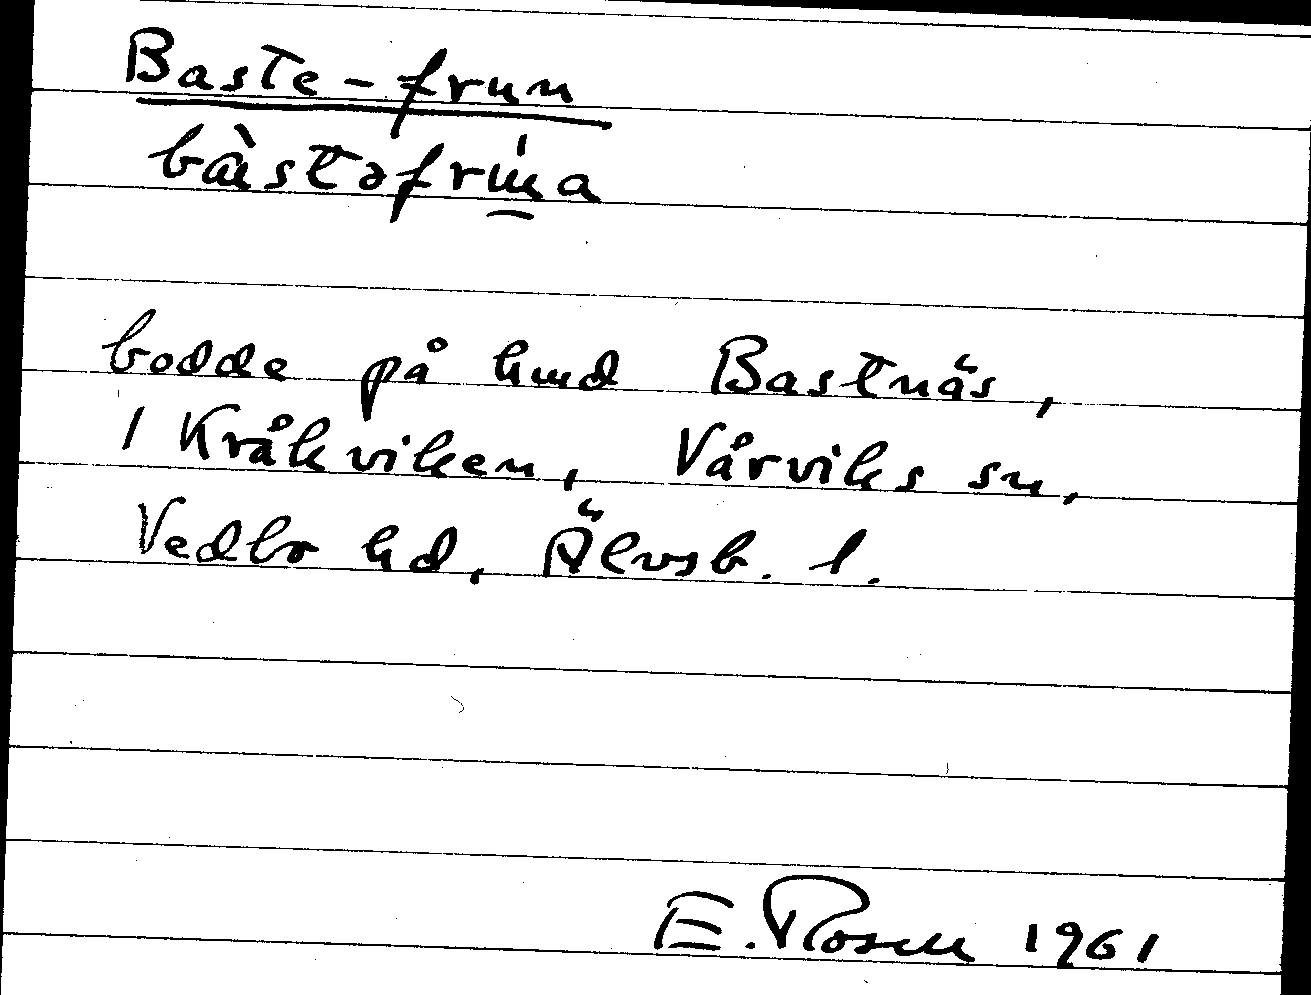 Baste-frun
bàstəfrúna
bodde på hmd Bastnäs,
1 Kråkviken, Vårviks sn,
Vedbo hd, Älvsb. l.
E. Rosen 1961